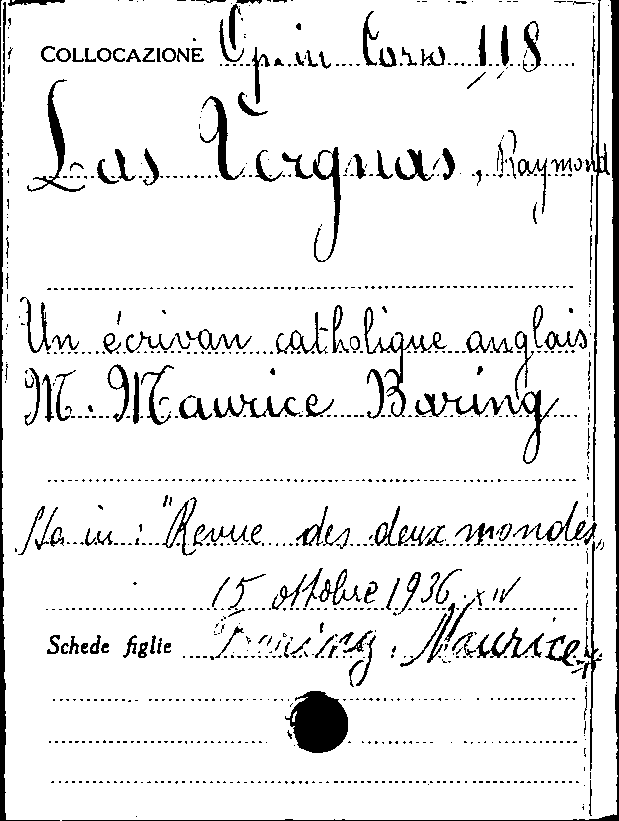 COLLOCAZIONE Op. in Corso 118
Las Vergnas, Raymond
Un écrivan catholique anglais
M. Maurice Baring
Sta in: "Revue des deux mondes"
15 ottobre 1936. XIV
Schede figlie Baring, Maurice